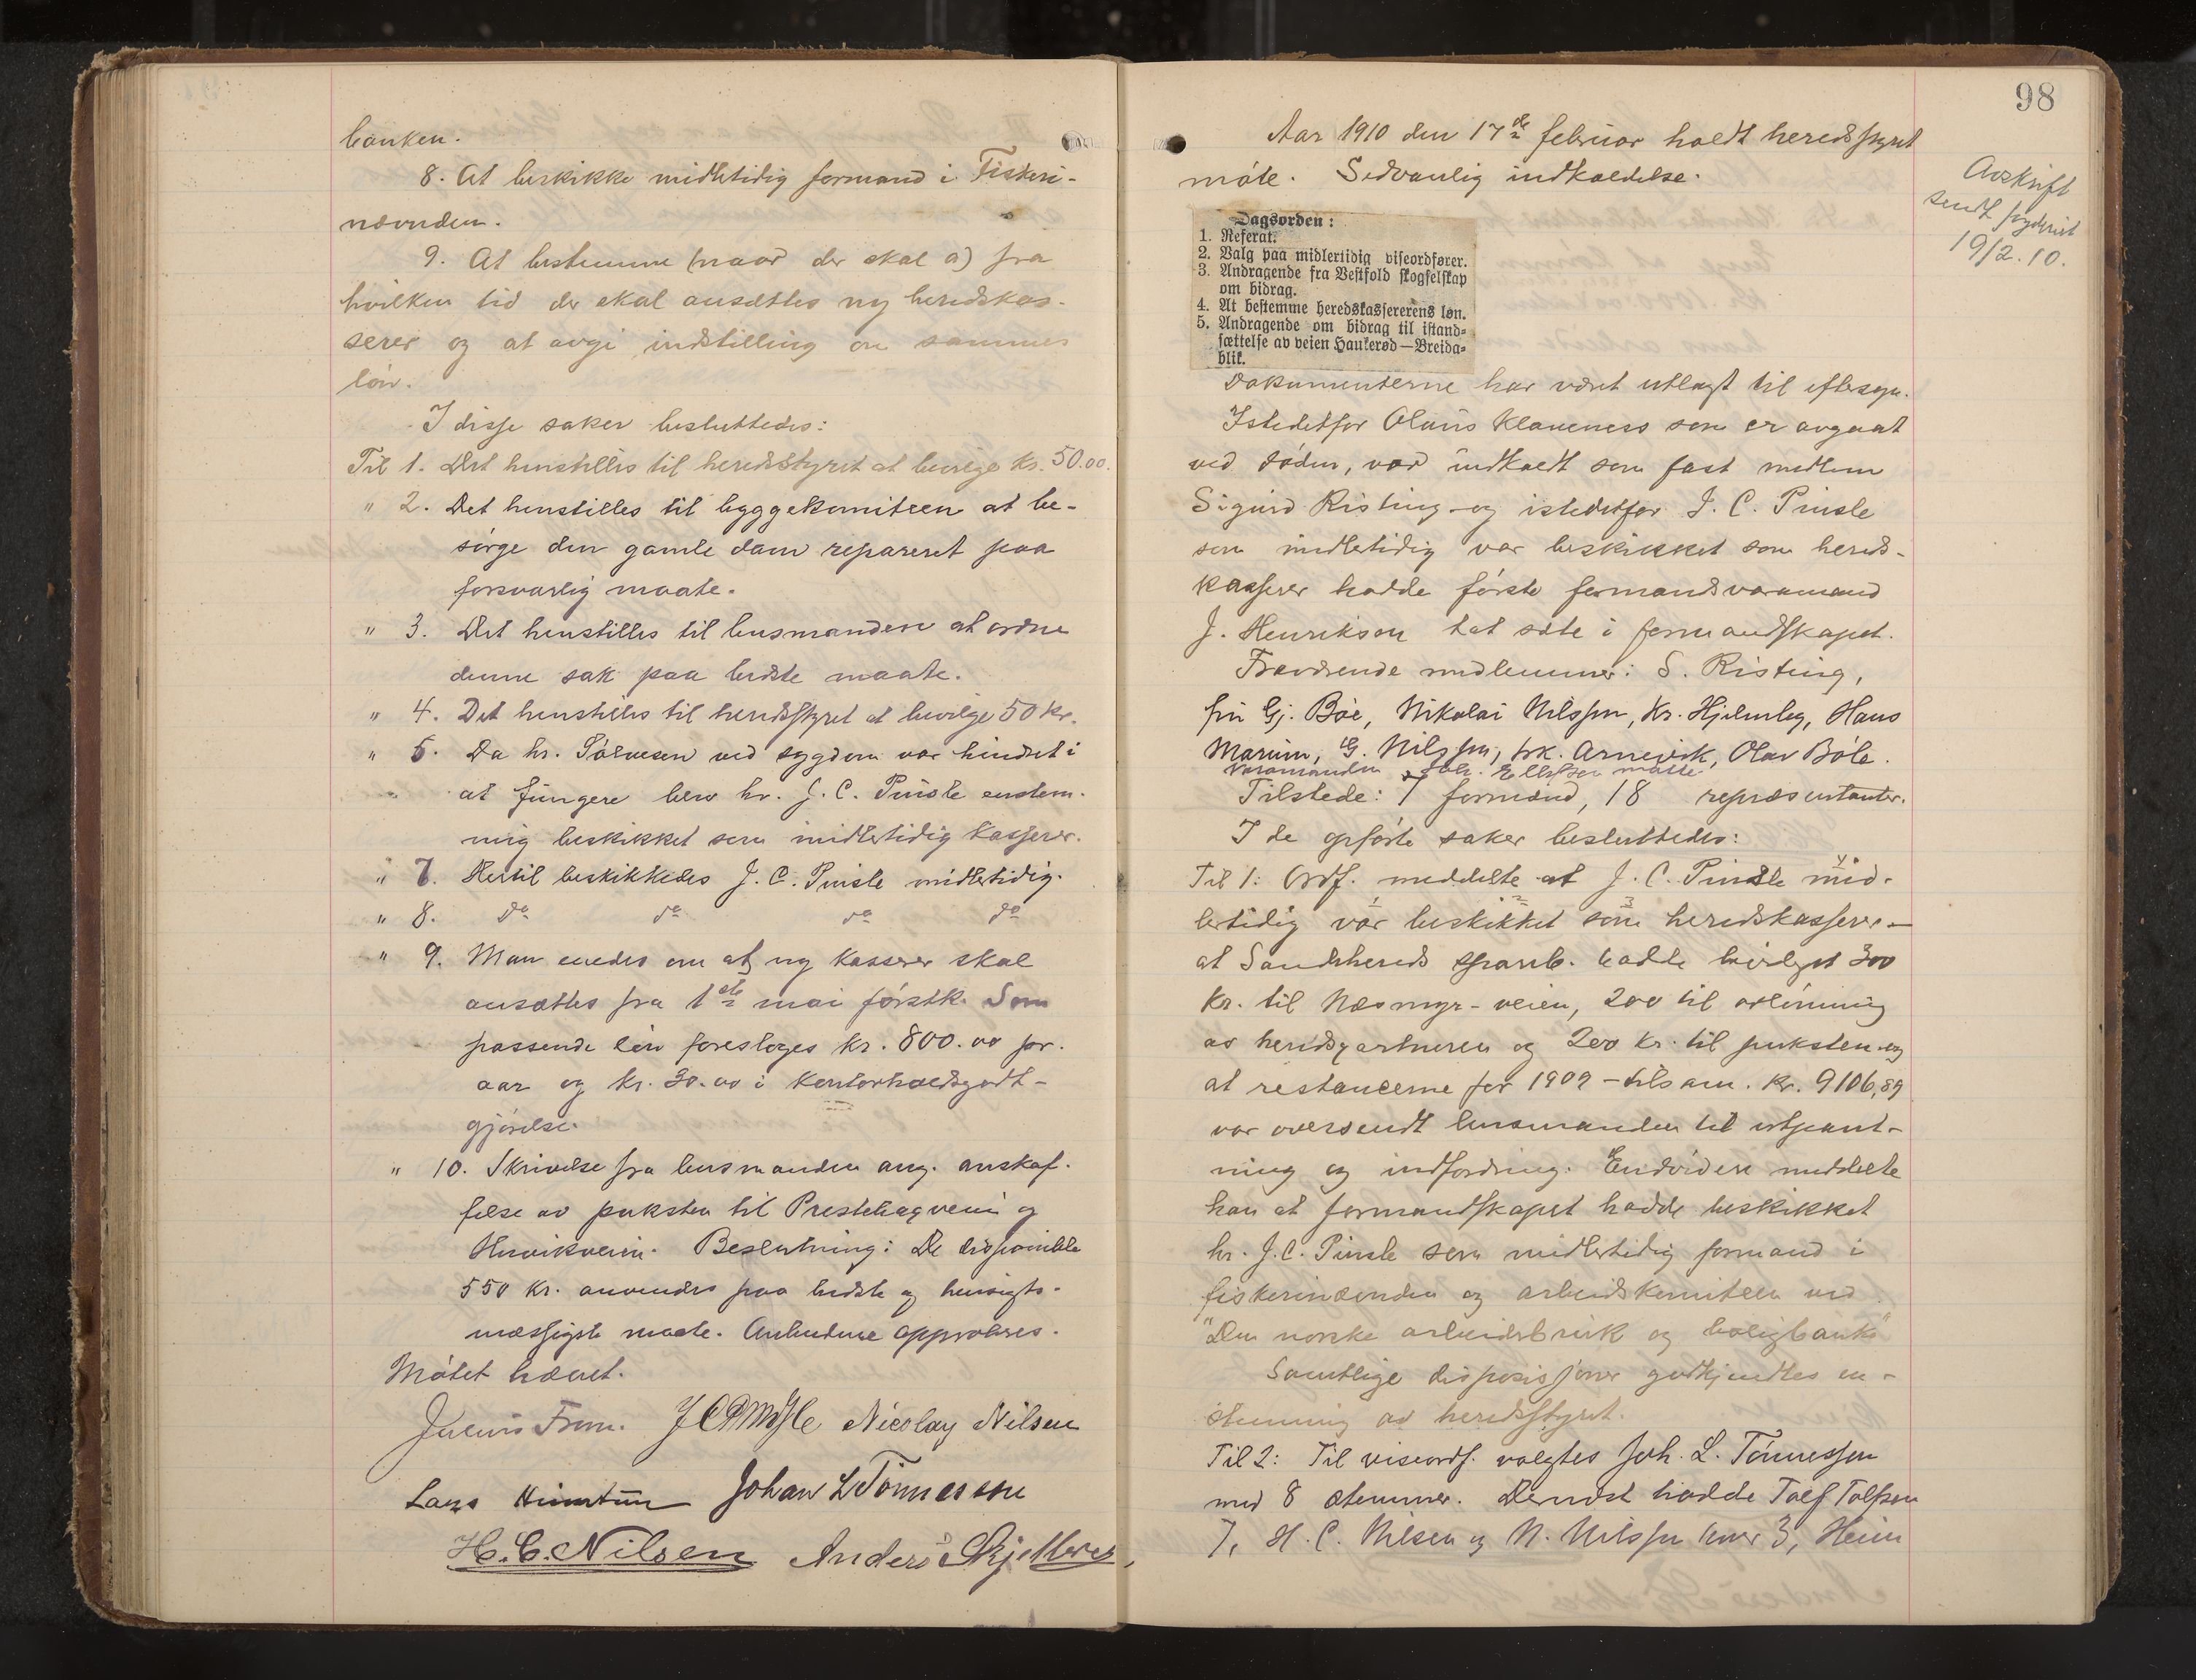 banken.
8. At beskikke midlertidig formand i Fiskeri-
nævnden.
9. At bestemme (naar der skal a) fra
hvilken tid der skal ansættes ny heredskas-
serer og at avgi indstilling om sammes
løn.
I disse saker besluttedes:
Til 1. Det henstilles til heredsstyret at bevilge kr. 50.00.
" 2. Det henstilles til byggekomiteen at be-
sørge den gamle dam repareret paa
forsvarlig maate.
" 3. Det henstilles til lensmanden at ordne
denne sak paa bedste maate.
" 4. Det henstilles til heredsstyret at bevilge 50 kr.
" 5. Da hr. Sørensen ved sygdom var hindret i
at fungere blev hr. J. C. Pinsle enstem-
mig beskikket som midlertidig kasserer.
" 7. Hertil beskikkedes J. C. Pinsle midlertidig.
" 8. do do do do
" 9. Man enedes om at ny kasserer skal
ansættes fra 1ste mai førstk. Som
passende løn foresloges kr. 800.00 pr.
aar og kr. 30.00 i kontorholdsgodt-
gjørelse.
" 10. Skrivelse fra lensmanden ang. anskaf-
felse av puksten til Prestehagveien og
Huvikveien. Beslutning: De disponible
550 kr. anvendes paa bedste og hensigts-
mæssigste maate. Anbudene approberes.
Møtet hævet.
Julius Fram. J C Pinsle Nicolay Nilsen
Lars Johan L Tønnessen
H. C. Nilsen Anders Skjelbred
98
Aar 1910 den 17de februar holdt heredsstyret
møte. Sedvanlig indkaldelse.
Avskrift
sendt
19/2.10.
Dagsorden:
1. Referat.
2. Valg paa midlertidig viseordfører.
3. Andragende fra Vestfold skogselskap
om bidrag.
4. At bestemme heredskassererens løn.
5. Andragende om bidrag til istand-
sættelse av veien Haukerød—Breida-
blik.
Dokumenterne har været utlagt til eftersyn.
Istedetfor Olaus Klaveness som er avgaat
ved døden, var indkaldt som fast medlem
Sigurd Risting og istedetfor J. C. Pinsle
som midlertidig var beskikket som hereds-
kasserer hadde første formandsvaramand
J. Henriksen tat sæte i formandskapet.
Fraværende medlemmer: S. Risting,
fru Gj. Bøe, Nikolai Nilssen, Kr. Hjelmleg, Hans
Marum, G. Nilssen, frk. Arnevik, Olav Bøle.
Varamanden Joh. Ellefsen møtte
Tilstede: 7 formænd, 18 repræsentanter.
I de opførte saker besluttedes:
Til 1: Ordf. meddelte at J. C. Pinsle mid-
lertidig var beskikket som heredskasserer—
at Sandehereds spareb. hadde bevilget 300
kr. til Næsmyr-veien, 200 til avlønning
av heredsgartneren og 200 kr. til puksten og
at restancerne for 1909 - tilsam. kr. 9106,89
var oversendt lensmanden til utpant-
ning og indfordring. Endvidere meddelte
han at formandskapet hadde beskikket
hr. J. C. Pinsle som midlertidig formand i
fiskerinævnden og arbeidskomiteen ved
"Den norske arbeiderbruk og boligbank"
Samtlige disposisjoner godkjendtes en-
stemmig av heredsstyret.
Til 2: Til viseordf. valgtes Joh. L. Tønnessen
med 8 stemmer. Dernæst hadde Tolf Tolfsen
7, H. C. Nilsen og N. Nilssen hver 3, Heim